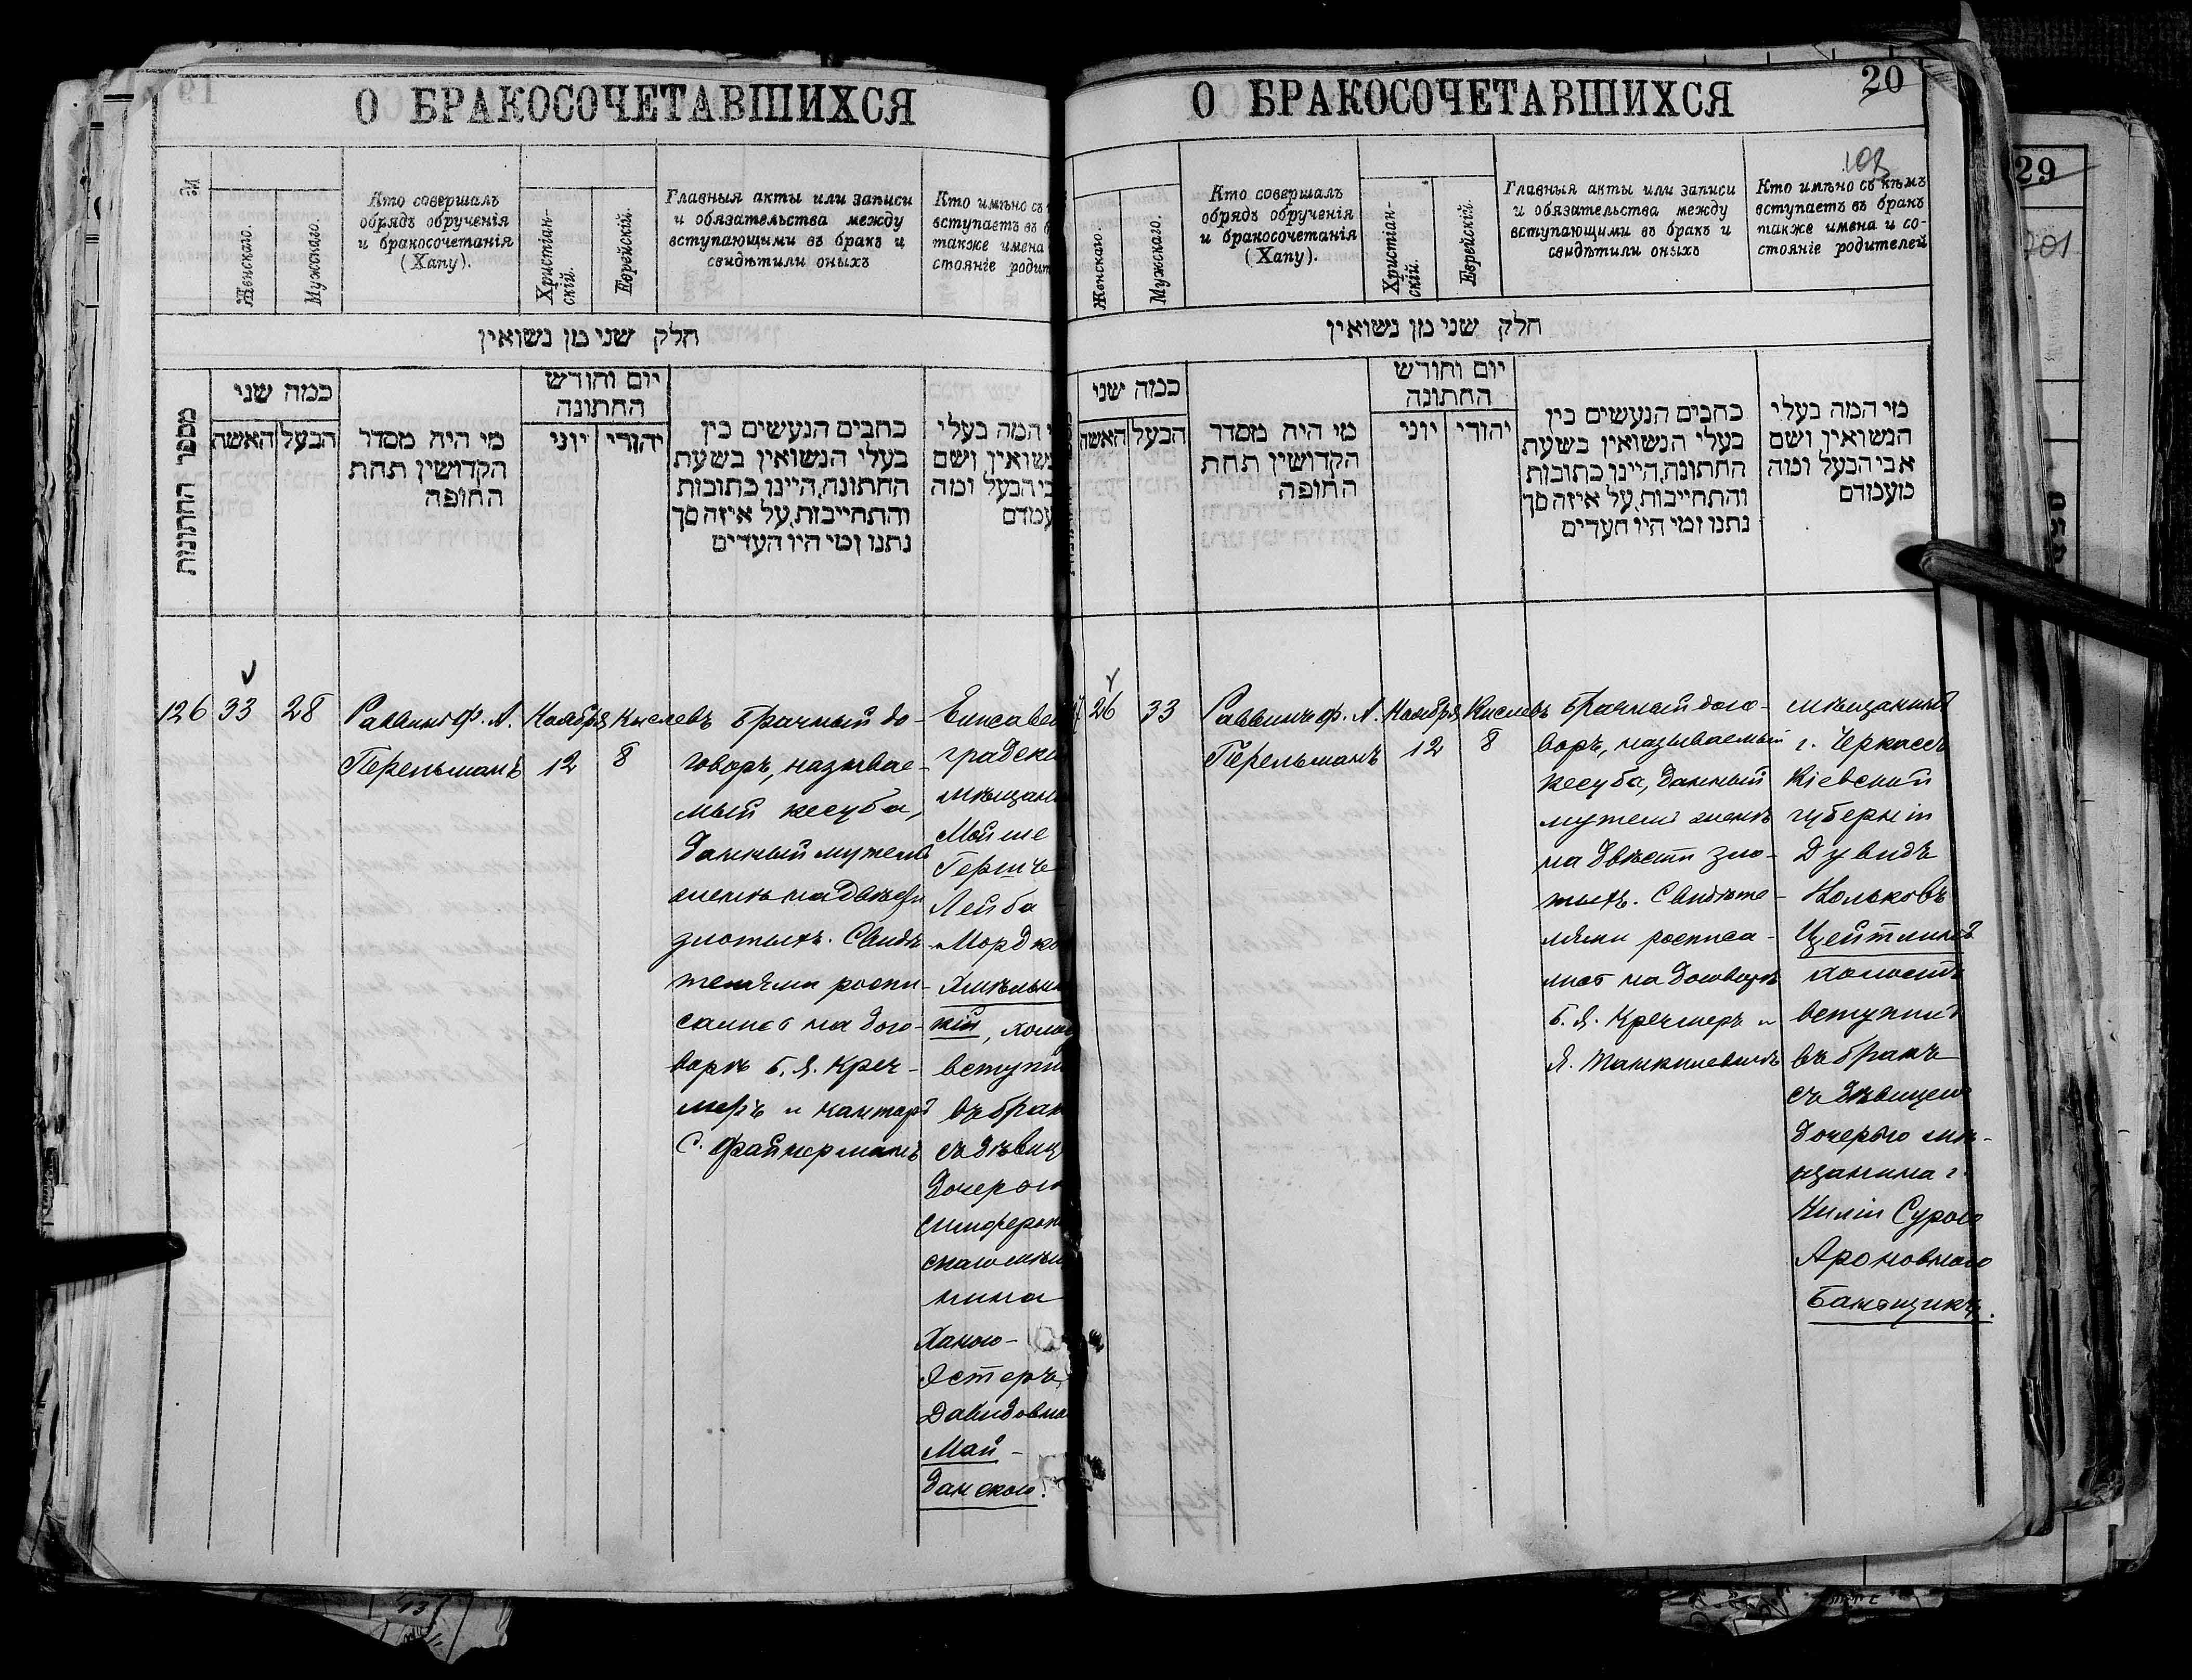 О БРАКОСОЧЕТАВШИХСЯ
№
Женскаго.
Мужскаго.
Кто совершалъ
обрядъ обрученія
и бракосочетанія
(Хапу).
Христіан-
скій.
Еврейскій.
Главныя акты или записи
и обязательства между
вступающими въ бракъ и
свидѣтили оныхъ
Кто имѣно съ
вступаетъ въ
также имена
стояніе родит
חלק שני מן נשואין
מספר החתונות
כמה שני
האשה
הבעל
מי היה מסדר
הקדושין תחת
החופה
יום וחודש
החתונה
יוני
יהודי
כתבים הנעשים בין
בעלי הנשואין בשעת
החתונה, היינו כתובות
והתחייבות, על איזה סך
נתנו ומי היו העדים
המה בעלי
נשואין ושם
בי הבעל ומה
עמדם
126
33
28
Раввинъ Ф. А.
Перельманъ
Ноября
12
Кислевъ
8
Брачный до-
говоръ, называе-
мый кесуба,
данный мужемъ
женѣ на двѣсти
злотыхъ. Свидѣ-
телями роспи-
сались на дого-
ворѣ Б. Я. Креч-
меръ и канторъ
С. Файнерманъ
Елисавет
градски
мѣщани
Мойше
Гершъ
Лейба
Мордко
Хмѣльниц
кій, холос
вступи
въ брак
съ дѣвиц
дочерью
симфероп
скаго мѣщ
нина
Ханою-
Эстеръ
Давидовна
Май-
данскою.
О БРАКОСОЧЕТАВШИХСЯ
20
Женскаго.
Мужскаго.
Кто совершалъ
обрядъ обрученія
и бракосочетанія
(Хапу).
Христіан-
скій.
Еврейскій.
Главныя акты или записи
и обязательства между
вступающими въ бракъ и
свидѣтили оныхъ
Кто имѣно съ кѣмъ
вступаетъ въ бракъ
также имена и со-
стояніе родителей
חלק שני מן נשואין
כמה שני
האשה
הבעל
מי היה מסדר
הקדושין תחת
החופה
יום וחודש
החתונה
יוני
יהודי
כתבים הנעשים בין
בעלי הנשואין בשעת
החתונה, היינו כתובות
והתחייבות, על איזה סך
נתנו ומי היו העדים
מי המה בעלי
הנשואין ושם
אבי הבעל ומה
מעמדם
26
33
Раввинъ Ф. А.
Перельманъ
Ноября
12
Кислевъ
8
Брачный дого-
воръ, называемый
кесуба, данный
мужемъ женѣ
на двѣсти зло-
тыхъ. Свидѣте-
лями росписа-
лись на договорѣ
Б. Я. Кречмеръ и
Я. Танкилевичъ
мѣщанинъ
г. Черкассъ
Кіевской
губерніи
Дувидъ
Цейтлинъ
холостъ
вступилъ
въ бракъ
съ дѣвицею
дочерью мѣ-
щанина г.
Киліи Сурою
Ароновною
29
101